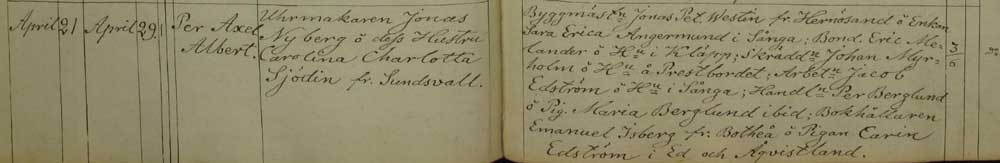 April 21 April 29. Per Axel Albert.
Uhrmakaren Jonas
Nyberg ö dess Hustru
Carolina Charlotta
Sjödin fr. Sundsvall.
Byggmästn Jonas Pet. Westin fr. Hernösand ö Enkan
Sara Erica Angermund i Sånga; Bond. Eric Me-
lander ö Hu i Kläpp; Skräddn Johan Myr-
holm ö Hu å Prestbordet; Arbetn Jacob
Edström ö Hu i Sånga; Handln Per Berglund
ö Pig. Maria Berglund ibid; Bokhållaren
Emanuel Isberg fr. Botheå ö Pigan Carin
Edström i Ed och Åqvistland.
3/6